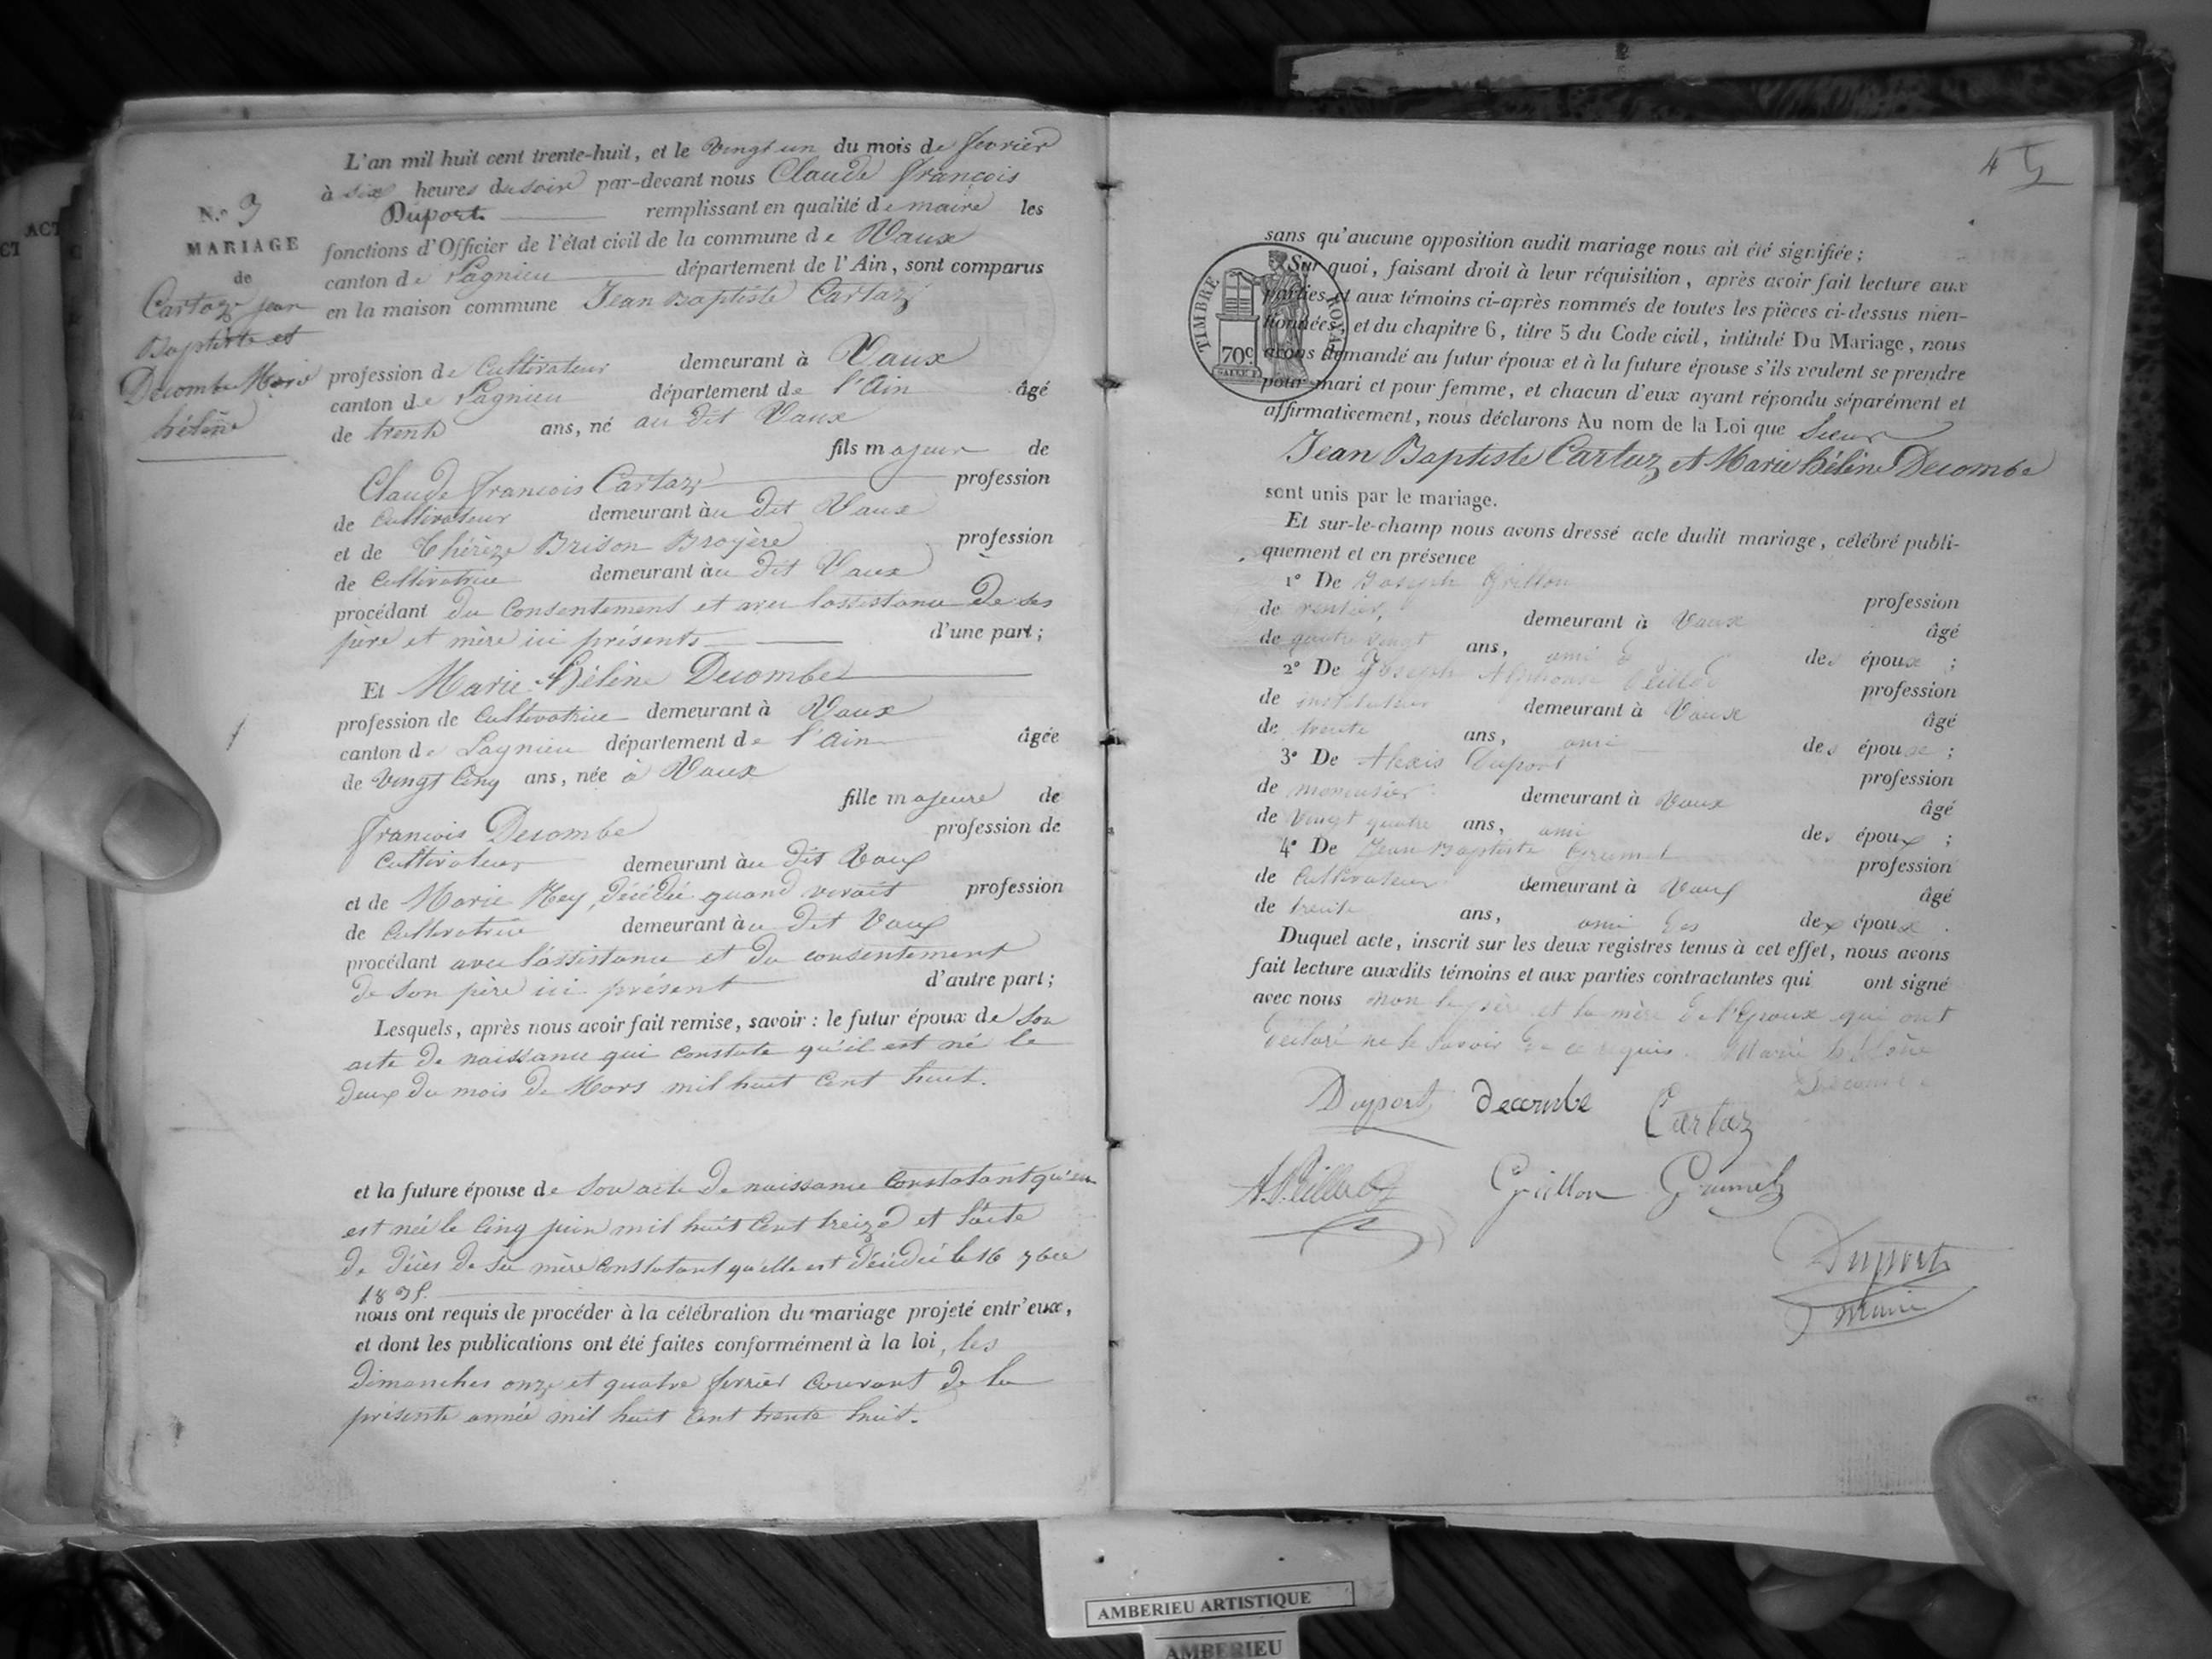 N.º 3
MARIAGE
de
Cartaz jean
Baptiste et
Decombe Marie
hélène
L'an mil huit cent trente-huit, et le vingt un du mois de fevrier
à six heures du soir par-devant nous Claude françois
Duport remplissant en qualité de maire les
fonctions d'Officier de l'état civil de la commune de Vaux
canton de Lagnieu département de l'Ain, sont comparus
en la maison commune Jean Baptiste Cartaz
profession de Cultivateur demeurant à Vaux
canton de Lagnieu département de l'Ain âgé
de trente ans, né au dit Vaux
fils majeur de
Claude françois Cartaz profession
de Cultivateur demeurant au dit Vaux
et de Thérèze Brison Broyère profession
de Cultivatrice demeurant au dit Vaux
procédant du Consentement et avec l'assistance de ses
père et mère ici présents d'une part;
Et Marie Hélène Decombe
profession de Cultivatrice demeurant à Vaux
canton de Lagnieu département de l'Ain âgée
de vingt Cinq ans, née à Vaux
fille majeure de
françois Decombe profession de
Cultivateur demeurant au dit Vaux
et de Marie Rey, décédée quand vivait profession
de Cultivatrice demeurant au dit Vaux
procédant avec l'assistance et du consentement
de son père ici présent d'autre part;
Lesquels, après nous avoir fait remise, savoir : le futur époux de son
acte de naissance qui constate qu'il est né le
deux du mois de Mars mil huit Cent huit.
et la future épouse de son acte de naissance Constatant qu'elle
est née le Cinq juin mil huit Cent treize et l'acte
de décès de sa mère constatant qu'elle est décédée le 16 7bre
nous ont requis de procéder à la célébration du mariage projeté entr'eux,
et dont les publications ont été faites conformément à la loi, les
dimanches onze et quatre fevrier Courant de la
présente année mil huit Cent trente huit.
4
TIMBRE ROYAL
70c
sans qu'aucune opposition audit mariage nous ait été signifiée;
Sur quoi, faisant droit à leur réquisition, après avoir fait lecture aux
parties et aux témoins ci-après nommés de toutes les pièces ci-dessus men-
tionnées, et du chapitre 6, titre 5 du Code civil, intitulé Du Mariage, nous
avons demandé au futur époux et à la future épouse s'ils veulent se prendre
pour mari et pour femme, et chacun d'eux ayant répondu séparément et
affirmativement, nous déclarons Au nom de la Loi que Sieur
Jean Baptiste Cartaz et Marie hélène Decombe
sont unis par le mariage.
Et sur-le-champ nous avons dressé acte dudit mariage, célébré publi-
quement et en présence
1º De Joseph Grillon profession
de rentier, demeurant à Vaux âgé
de quatre vingt ans, ami des époux ;
2º De Joseph Alphonse profession
de instituteur demeurant à Vaux âgé
de trente ans, ami des époux ;
3º De Alexis Duport profession
de menuisier demeurant à Vaux âgé
de Vingt quatre ans, ami des époux ;
4º De Jean Baptiste Grumel profession
de Cultivateur demeurant à Vaux âgé
de trente ans, ami des époux .
Duquel acte, inscrit sur les deux registres tenus à cet effet, nous avons
fait lecture auxdits témoins et aux parties contractantes qui ont signé
avec nous non le père et la mère de l'Epoux qui ont
declaré ne le savoir de ce requis. Marie hélène
Decombe
Duport decombe Cartaz
Grillon Grumel
Duport
maire
AMBERIEU ARTISTIQUE
AMBERIEU